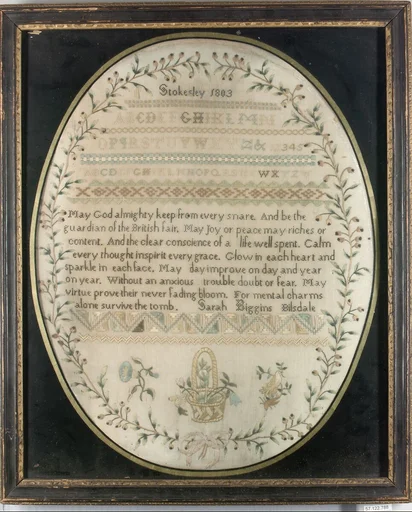 Stokesley 1803
ABCDEFGHIKLMN
OPQRSTUVW
Z& 12345
ABCDEFGHIKLMNOPQRSTUVWXYZ
May God almighty keep from every snare. And be the
guardian of the British fair. May Joy or peace may riches or
content. And the clear conscience of a life well spent. Calm
every thought inspirit every grace. Glow in each heart and
sparkle in each face. May day improve on day and year
on year. Without an anxious trouble doubt or fear. May
virtue prove their never fading bloom. For mental charms
alone survive the tomb. Sarah Biggins Bilsdale